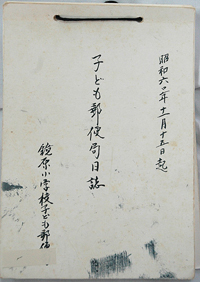 昭和六〇年十一月十五日起
子ども郵便局日誌
鏡原小学校子ども郵便局